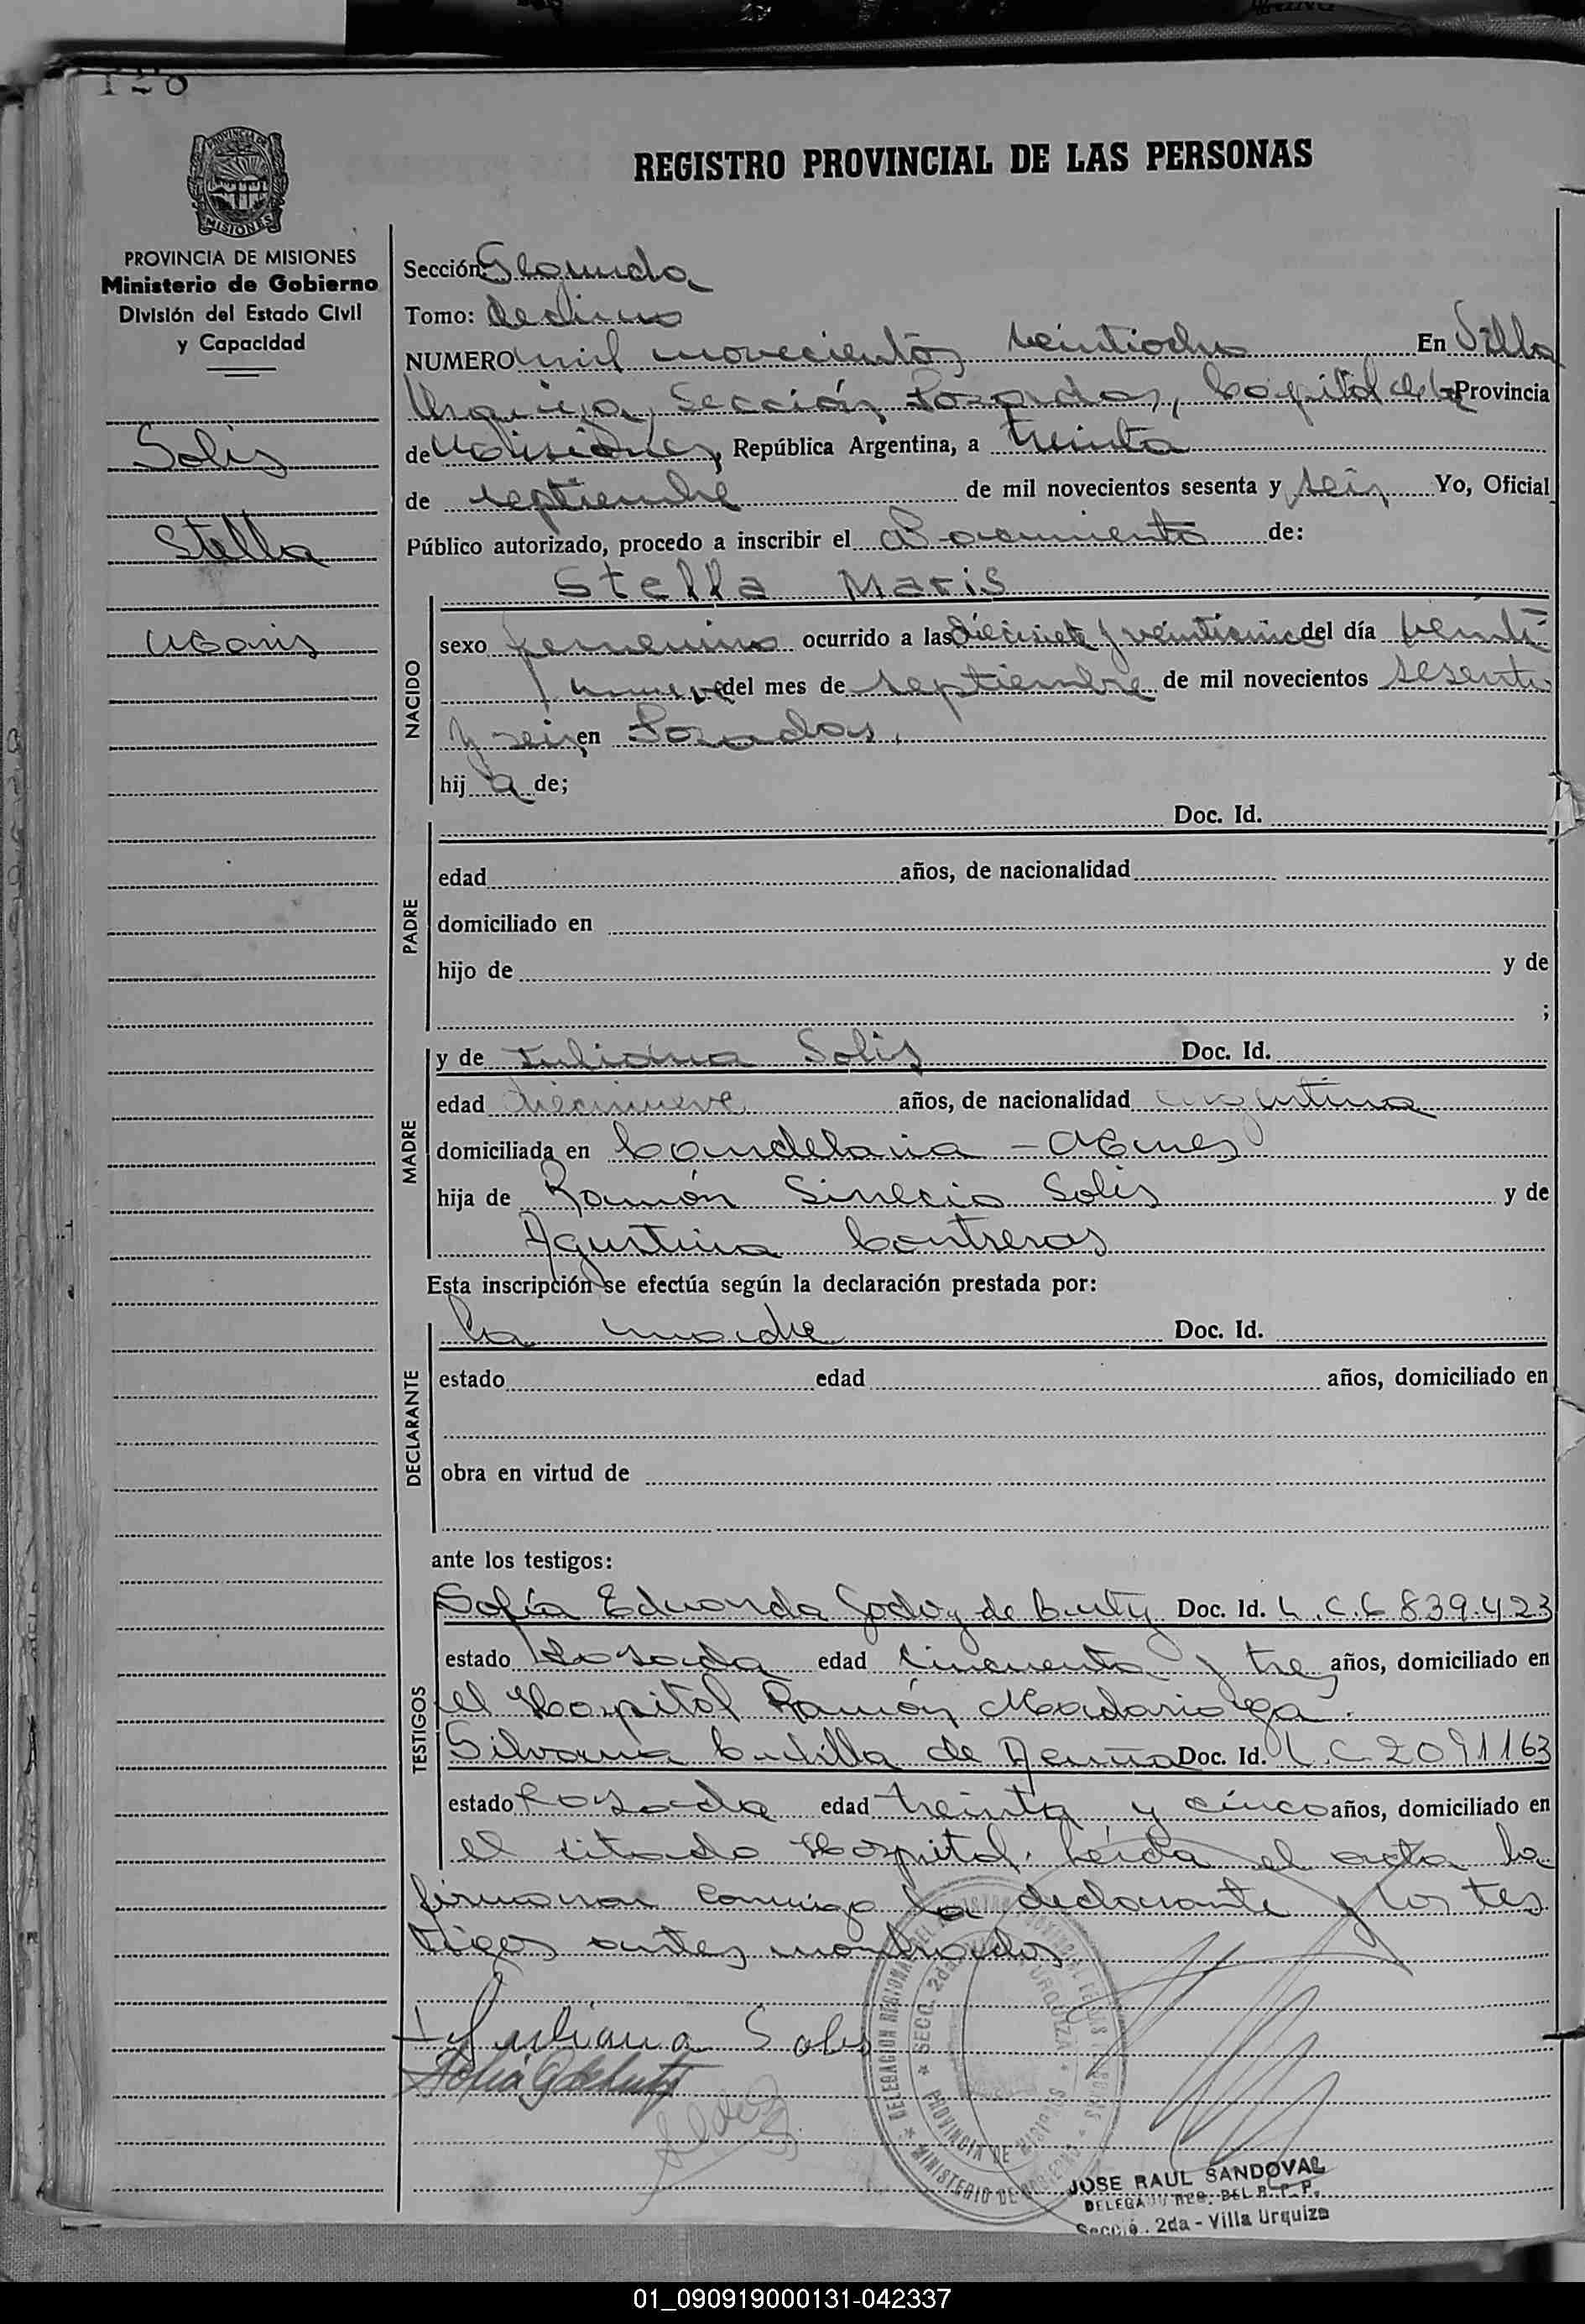 128
REGISTRO PROVINCIAL DE LAS PERSONAS
PROVINCIA DE MISIONES
Ministerio de Gobierno
División del Estado Civil
y Capacidad
Solis
Stella
Maris
Sección: Segunda
Tomo: Decimo
NUMERO mil novecientos veintiocho En Villa
Urquiza, Sección Posadas, Capital de la Provincia
de Misiones, República Argentina, a treinta
de septiembre de mil novecientos sesenta y seis Yo, Oficial
Público autorizado, procedo a inscribir el Nacimiento de:
Stella Maris
NACIDO
sexo femenino ocurrido a las diecisiete y veinticinco del día veinti-
nueve del mes de septiembre de mil novecientos sesenta
y seis en Posadas.
hij a de;
PADRE
Doc. Id.
edad años, de nacionalidad
domiciliado en
hijo de y de
;
MADRE
y de Juliana Solis Doc. Id.
edad diecinueve años, de nacionalidad argentina
domiciliada en Candelaria - Mnes
hija de Ramón Sinecio Solis y de
Agustina Contreras
Esta inscripción se efectúa según la declaración prestada por:
DECLARANTE
La madre Doc. Id.
estado edad años, domiciliado en
obra en virtud de
ante los testigos:
TESTIGOS
Sofía Eduarda Godoy de Doc. Id. L.C. 6 839.423
estado Casada edad cincuenta y tres años, domiciliado en
el Hospital Ramón Madariaga.
Silvana de Acuña Doc. Id. L.C. 2091163
estado Casada edad treinta y cinco años, domiciliado en
el citado Hospital. Leída el acta la
firmaron conmigo la declarante y los tes
tigos antes nombrados
Juliana Solis
DELEGACION REGIONAL DEL REGISTRO PROVINCIAL DE LAS PERSONAS
SECC. 2da URQUIZA
PROVINCIA DE MISIONES
MINISTERIO DE GOBIERNO
JOSE RAUL SANDOVAL
DELEGADO REG. DEL R. P. P.
Secció. 2da - Villa Urquiza
01_090919000131-042337